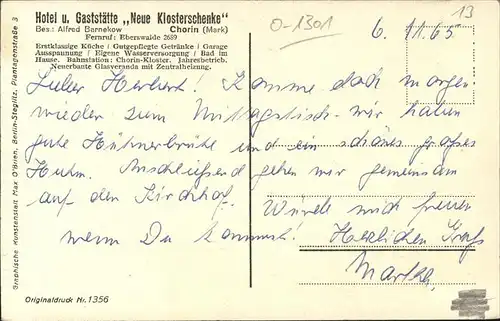 Hotel u. Gaststätte „Neue Klosterschenke"
Bes.: Alfred Barnekow Chorin (Mark)
Fernruf: Eberswalde 2689
Erstklassige Küche / Gutgepflegte Getränke / Garage
Ausspannung / Eigene Wasserversorgung / Bad im
Hause. Bahnstation: Chorin-Kloster. Jahresbetrieb.
Neuerbaute Glasveranda mit Zentralheizung.
0-1301
13
6. 11. 65
Lieber Herbert! Komme doch morgen
wieder zum Mittagstisch – wir haben
gute Hühnerbrühe und ein schönes großes
Huhn. Anschließend gehen wir gemeinsam
auf den Kirchhof.
Würde mich freuen
wenn Du kommst! Herzlichen Gruß
Martha
Graphische Kunstanstalt Max O'Brien, Berlin-Steglitz, Plantagenstraße 3
Originaldruck Nr. 1356